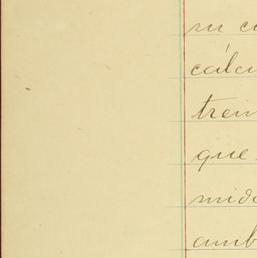 su c
cálcu
trein
que
mida
amb